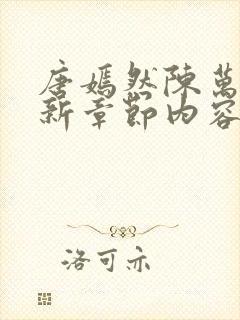 唐嫣然陳萬
新章節內容
洛可亦